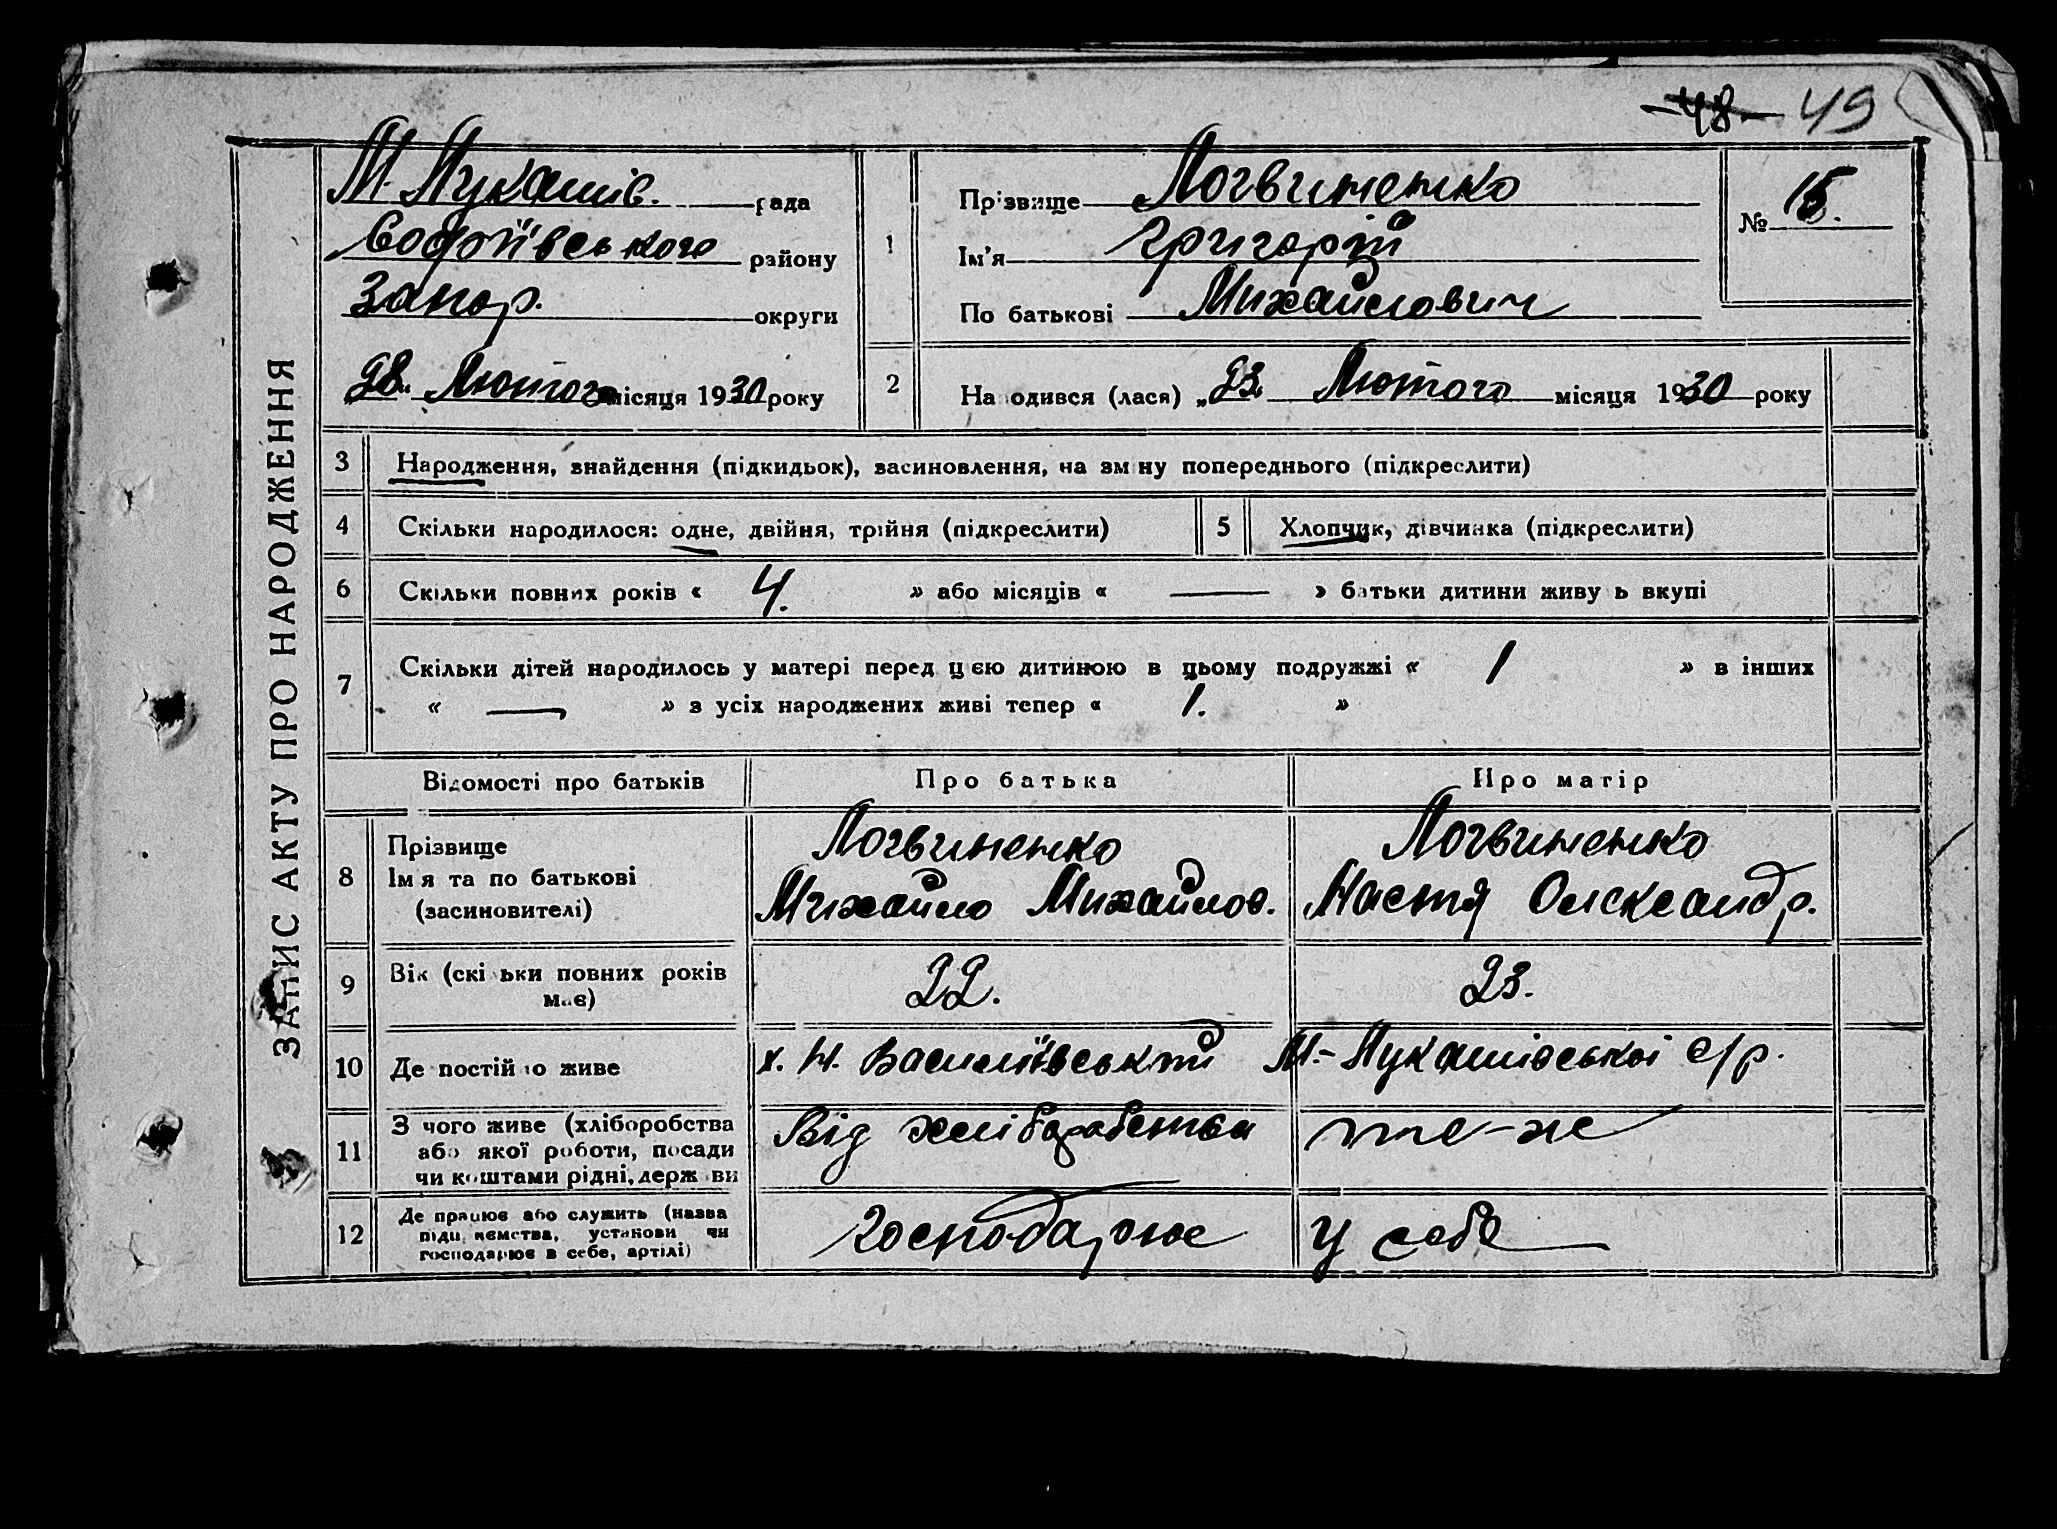 48 49
ЗАПИС АКТУ ПРО НАРОДЖЕННЯ
М. Лукашів. рада
Софіївського району
Запор. округи
"28" Лютого місяця 1930 року
1 Прізвище Логвиненко
Ім'я Григорій
По батькові Михайлович
№ 15.
2 Народився (лася) „23" Лютого місяця 1930 року
3 Народження, знайдення (підкидьок), засиновлення, на зміну попереднього (підкреслити)
4 Скільки народилося: одне, двійня, трійня (підкреслити) 5 Хлопчик, дівчинка (підкреслити)
6 Скільки повних років « 4. » або місяців « — » батьки дитини живуть вкупі
7 Скільки дітей народилось у матері перед цією дитиною в цьому подружжі « 1 » в інших
« — » з усіх народжених живі тепер « 1. »
Відомості про батьків Про батька Про матір
8 Прізвище Ім'я та по батькові (засиновителі)
Логвиненко Михайло Михайлов.
Логвиненко Настя Олександр.
9 Вік (скільки повних років має) 22. 23.
10 Де постійно живе х. Н. Василіївський М.-Лукашівської с/р.
11 З чого живе (хліборобства або якої роботи, посади чи коштами рідні, держави
Від хліборобства то-же
12 Де працює або служить (назва підприємства, установи чи господарює в себе, артілі)
Господарює у себе